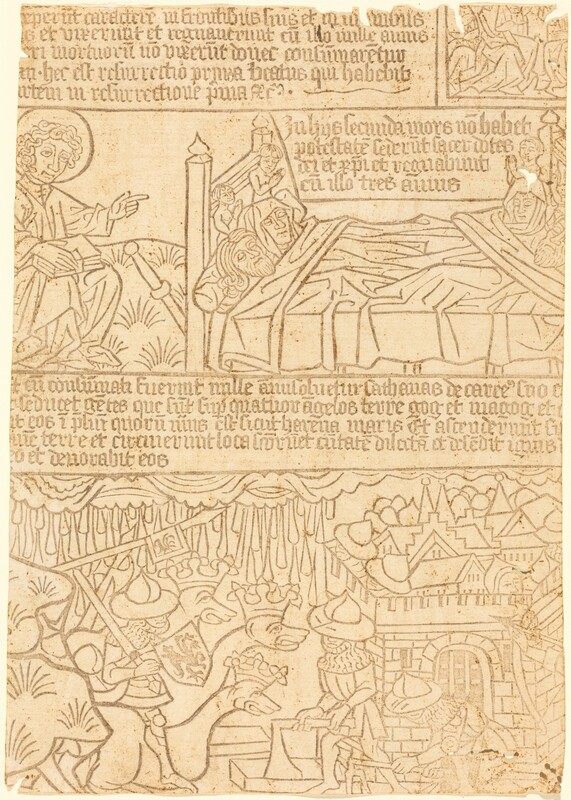 reperut caractere in frontibus suis et in manibus
s et vixerut et regnaverunt cu illo mille annis
ri mortuoru no vixerut donec consumarentur
hec est resurrectio prima Beatus qui habebit
artem in resurrectione pma
In hijs secunda mors no habet
potestate sed erut sacerdotes
dei et xpi et regnabunt
cu illo tres annis
et cu consumati fuerint mille anni soluetur sathanas de carcere suo
seducet getes que sut sup quatuor agelos terre gog et magog et
it eos i pliu quoru nuus e sicut harena maris Et ascenderunt
terre et circuierunt loca scoru et ciuitate dilecta et descedit ignis
o et deuorabit eos